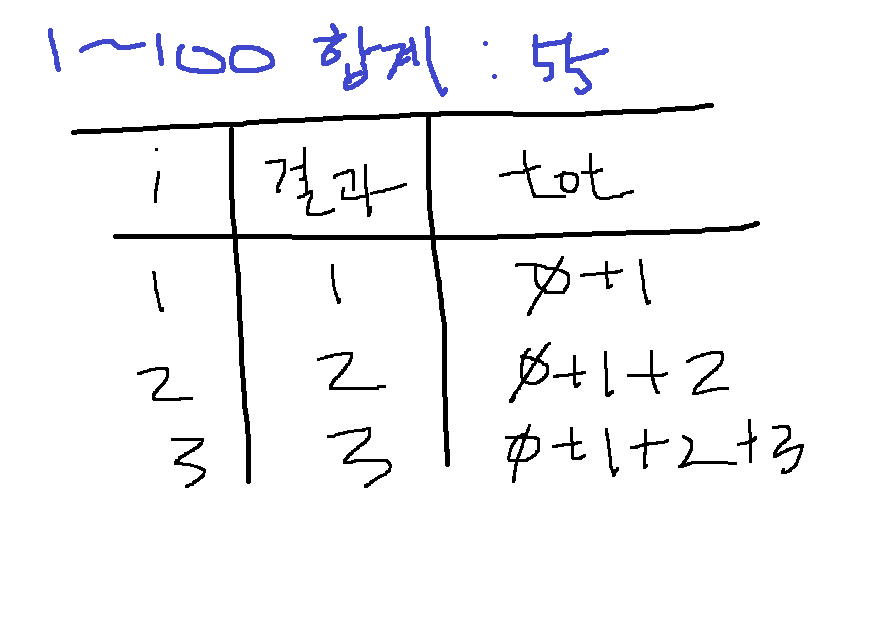 1~100 합계 : 55
i 결과 tot
1 1 0+1
2 2 0+1+2
3 3 0+1+2+3